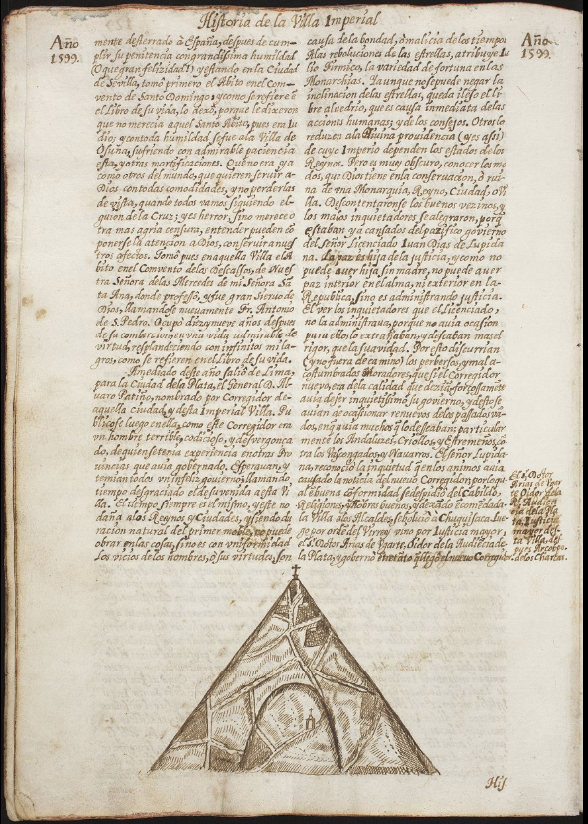 Historia de la Villa Imperial
Año
1599.
mente desterrado à España, despues de cum-
plir su penitencia con grandissima humildad
(O que gran felizidad!) y estando en la Ciudad
de Sevilla, tomò primero el Abito en el Con-
vento de Santo Domingo; y como se refiere ē
el Libro de su vida, lo dexò, porque le dixeron
que no merecia aquel Santo Abito, pues era Iu
dio; y con toda humildad se fue ala Villa de
Osuña, sufriendo con admirable paciencia
esta, y otras mortificaciones. Que no era, ya
como otros del mundo, que quieren servir a
Dios con todas comodidades, y no perderlas
de vista, quando todos vamos siguiendo el
quion de la Cruz; yes herror, sino merece o
tra mas agria censura, entender pueden cō
ponerse la atencion a Dios, con servir a nues
tros afectos. Tomò pues en aquella Villa el A
bito en el Convento delos Descalsos, de Nues
tra Señora delas Mercedes de mi Señora Sā
ta Ana, donde professò, y fue gran Siervo de
Dios, llamandose nuevamente Fr. Antonio
de S. Pedro. Ocupò diez y nueve años despues
de su combercion en vna vida admirable de
virtud, resplandeciendo con infinitos mila-
gros, como se refieren en el Libro de su vida.
A mediado deste año saliò de Lima,
para la Ciudad dela Plata, el General D. Al-
varo Patiño, nombrado por Corregidor de
aquella ciudad, y desta Imperial Villa. Pu
blicose luego en ella, como este Corregidor era
vn hombre terrible, codicioso, y desvergonça
do, de quien se tenia experiencia en otras Pro
vincias que avia governado. Esperavan, y
temian todos vn infeliz govierno, llamando
tiempo desgraciado el de su venida aesta Vi
lla. El tiempo siempre es el mismo, y este no
daña alos Reynos y Ciudades, y siendo du
racion natural del primer moble, no puede
obrar en las cosas, sino es con vniformidad
Los vicios de los hombres, ò sus virtudes, son
Año
1599.
causa de la bondad, ò malicia de los tiempos
Alas reboluciones de las estrellas, atribuye Iu
lio Firmico, la variedad de fortuna en las
Monarchias. Y aunque no se puede negar la
inclinacion de las estrellas, queda ileso el li
bre alvedrio, que es causa inmediata de las
acciones humanas; y de los consejos. Otros lo
reduzes ala Divina providencia (y es asi)
de cuyo Imperio dependen los estados de los
Reynos. Pero es muy obscuro, conocer los mo
dos, que Dios tiene en la conservacion, ò rui-
na de vna Monarquia, Reyno, Ciudad, o Vi
lla. Descontentaronse los buenos vezinos, y
los malos inquietadores se alegraron, porq̄
estaban yà cansados del pazifico govierno
del Señor Licenciado Iuan Dias de Lupida
na. La paz es hija de la justicia, y como no
puede aver hija sin madre, no puede aver
paz interior en el alma, ni exterior en la
Republica, sino es administrando justicia.
El ver los inquietadores que el Licenciado,
no la administrava, porque no avia ocasion
para ello lo extrañaban, y deseaban mas el
rigor, que la suavidad. Por esto discurrian
(y no fuera de camino) los perbersos, y mal a-
costumbrados Moradores, que si el Corregidor
nuevo, era dela calidad que dezian, forzosamēte
avia de ser inquietissimo su govierno, y desto se
avian de ocasionar renuevos delos passados va-
dos, en q̄ avia muchos q̄ lo deseaban, particular
mente los Andaluzes, Criollos, y Estremeños, cō
tra los Vascongados, y Navarros. El señor Lupida-
na, reconociò la inquietud q̄ en los animos avia
causado la noticia del nuevo Corregidor, por lo qual
al ebuena coformidad se despidio del Cabildo,
Religiones, y Nobres buenos, y dexando encomendada
la Villa alos Alcaldes, se bolviò a Chuquisaca. Lue
go por orden del Virrey vino por Iusticia mayor,
el S. Dotor Arias de Vgarte, Oidor de la Audiencia de
la Plata, y governò hasta que llegò el nuevo Corregidor
El S. Dotor
Arias de Vgar
te Oidor dela
Rl. Audiencia
dela Pla
ta, Iusticia
mayor des
ta Villa, des
pues Arcobpo.
delos Charcas.
His